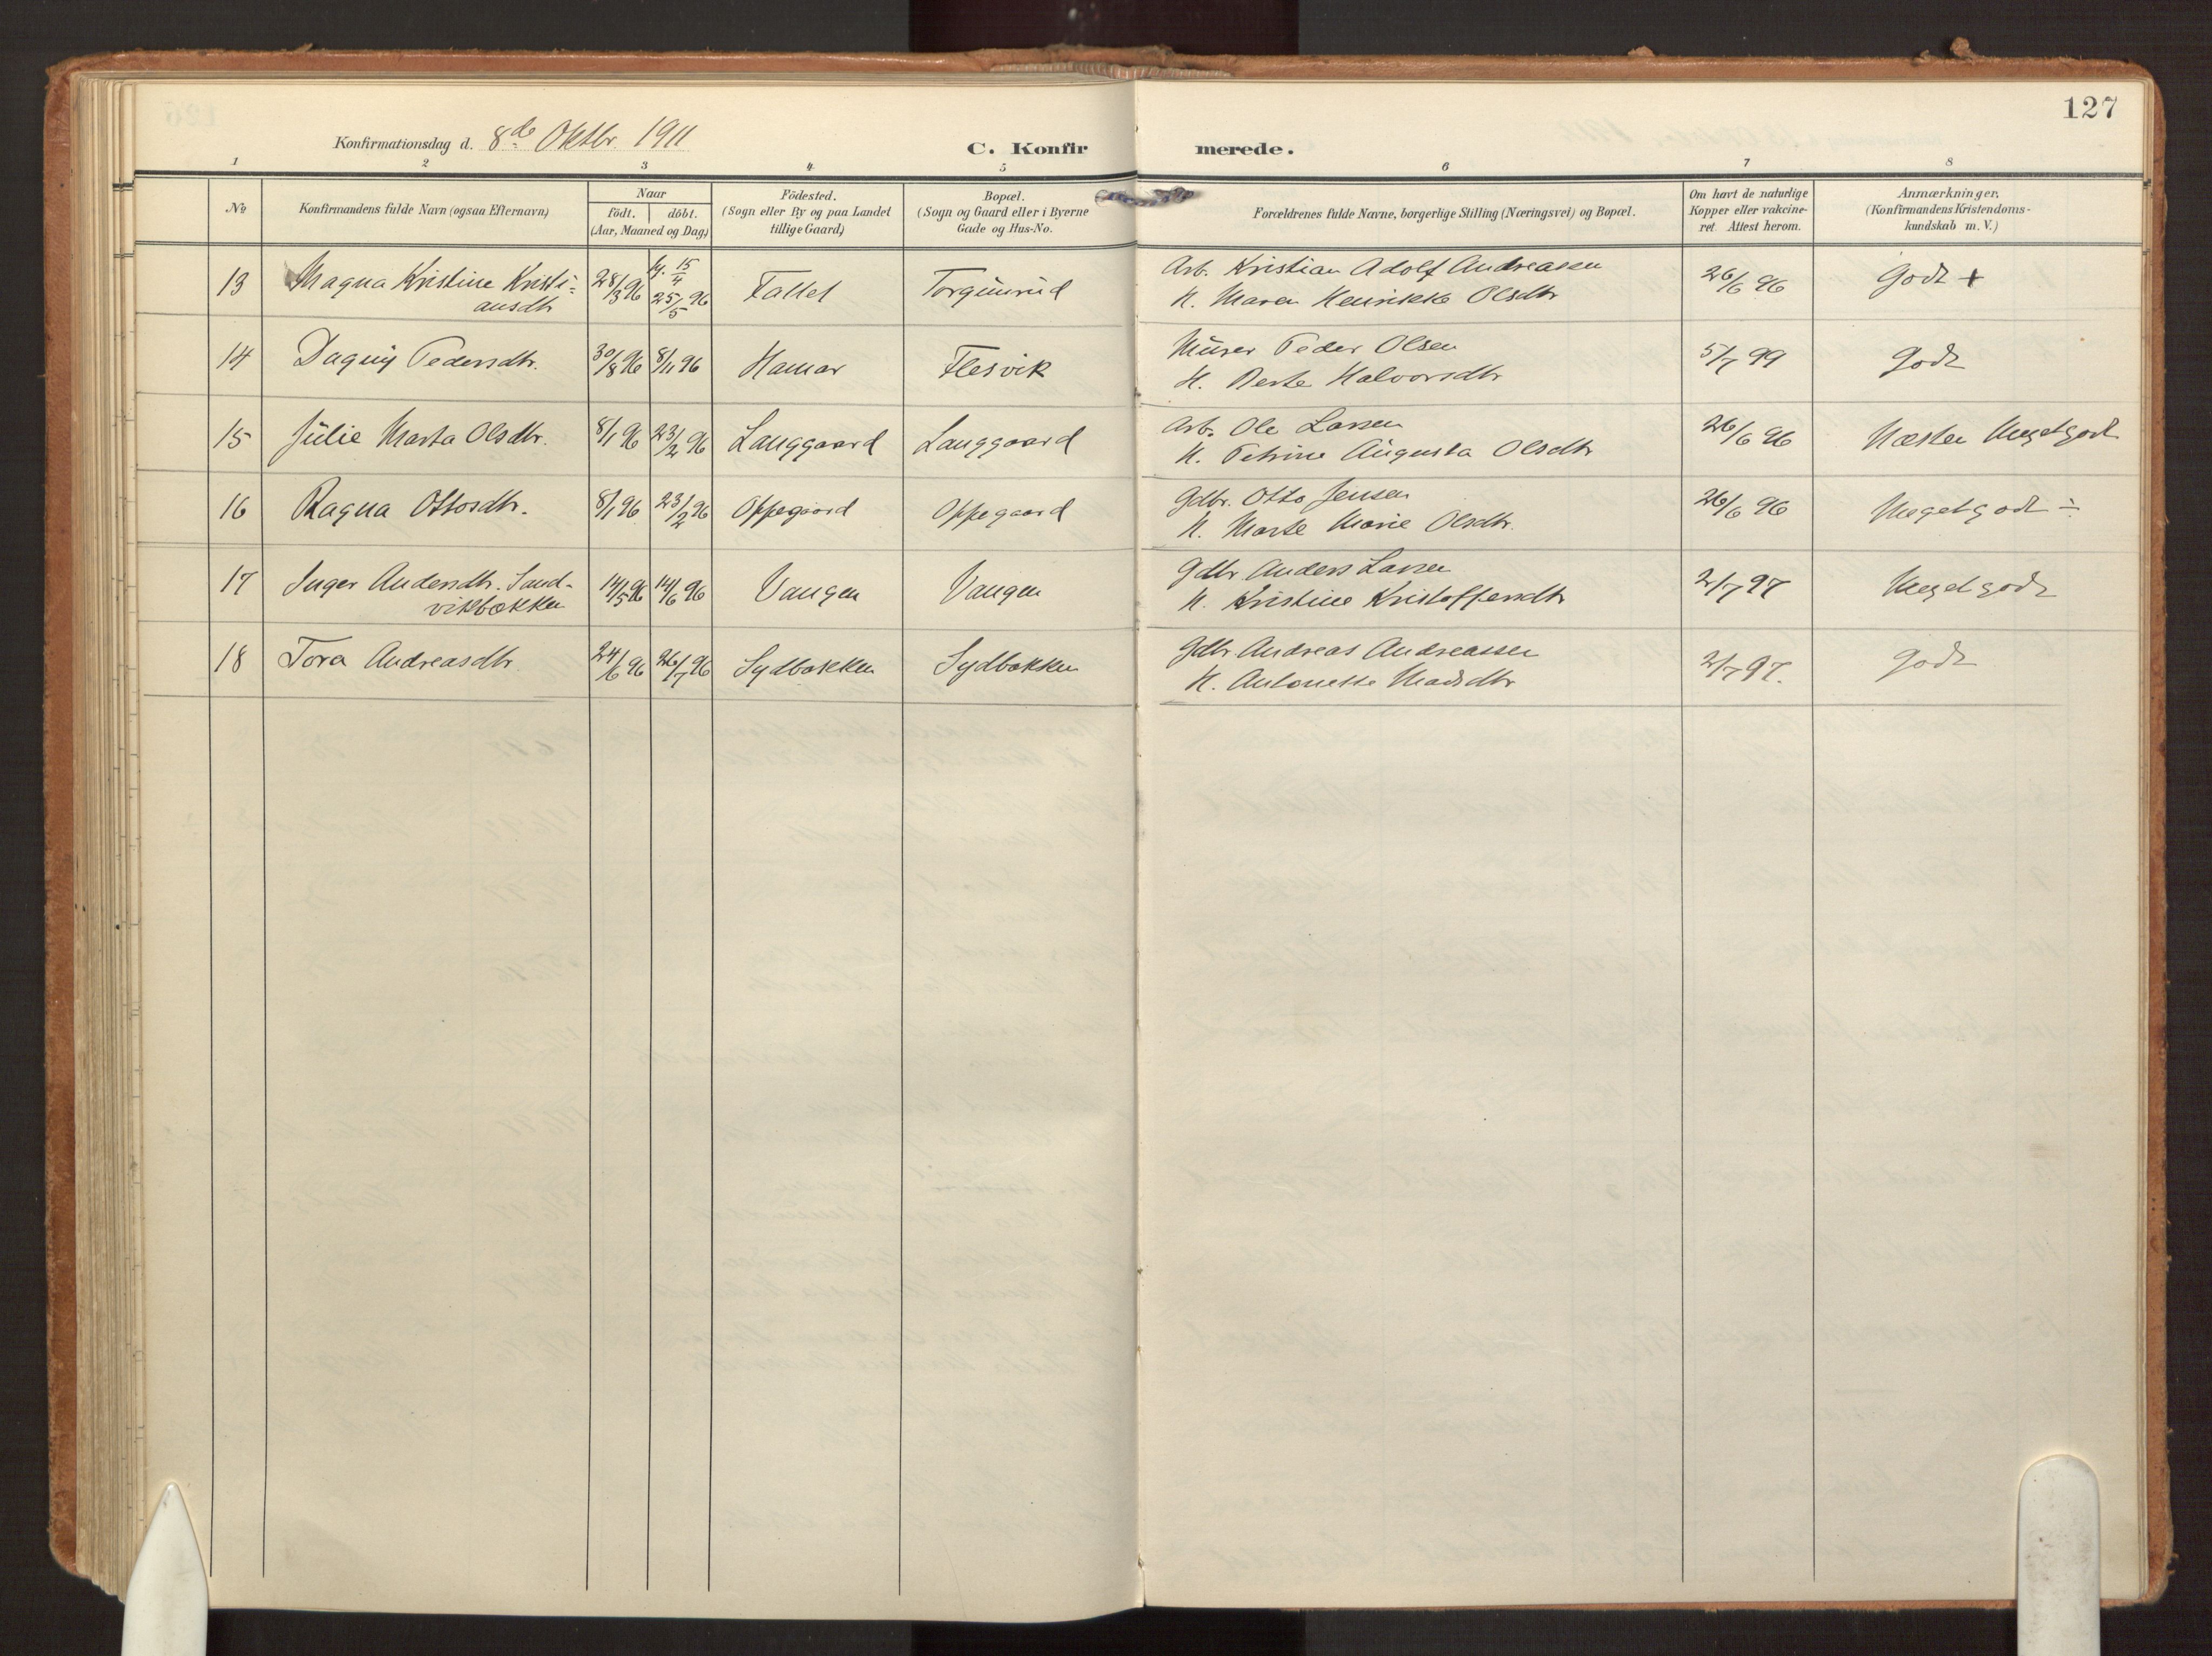 127
Konfirmationsdag d. 8de Oktbr. 1911
C. Konfirmerede.
1 2 3 4 5 6 7 8
No
Konfirmandens fulde Navn (ogsaa Efternavn)
Naar
födt. döbt.
(Aar, Maaned og Dag)
Födested.
(Sogn eller By og paa Landet
tillige Gaard)
Bopæl.
(Sogn og Gaard eller i Byerne
Gade og Hus-No.
Forældrenes fulde Navne, borgerlige Stilling (Næringsvei) og Bopæl.
Om havt de naturlige
Kopper eller vakcine-
ret. Attest herom.
Anmærkninger,
(Konfirmandens Kristendoms-
kundskab m. V.)
13 Magna Kristine Kristi=
ansdtr 28/3 96 hj. 15/4 25/5 96 Fallet Torgunrud Arb. Kristian Adolf Andreassen
H. Maren Henrikke Olsdtr 26/6 96 Godt +
14 Dagny Pedersdtr. 30/8 96 8/11 96 Hamar Flesvik Murer Peder Olsen
H. Berte Halvorsdtr 5/7 99 Godt
15 Julie Marta Olsdtr. 8/1 96 23/2 96 Langgaard Langgaard Arb. Ole Larsen
H. Petrine Augusta Olsdtr 26/6 96 Næsten Megetgodt
16 Ragna Ottosdtr. 8/1 96 23/2 96 Oppegaard Oppegaard Gdbr. Otto Jensen
H. Marte Marie Olsdtr. 26/6 96 Megetgodt ÷
17 Inger Andersdtr. Sand-
vikbækken 14/5 96 14/6 96 Vangen Vangen Gdbr Anders Larsen
H. Kristine Kristoffersdtr 2/7 97 Megetgodt
18 Tora Andreasdtr 24/6 96 26/7 96 Sydbakken Sydbakken Gdbr Andreas Andreassen
H. Antonette Madsdtr 2/7 97. Godt